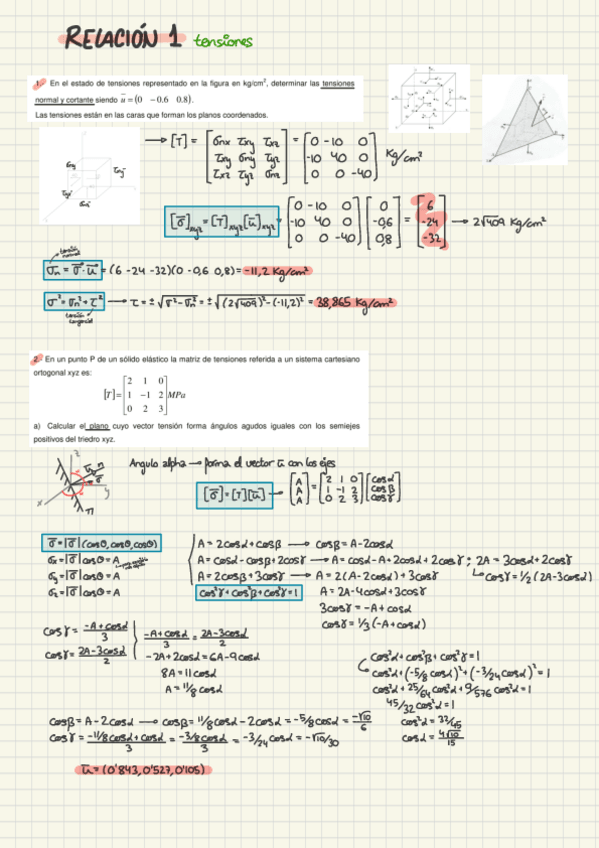 RELACIÓN 1 tensiones
1. En el estado de tensiones representado en la figura en kg/cm², determinar las tensiones
normal y cortante siendo u̅ = (0 −0.6 0.8).
Las tensiones están en las caras que forman los planos coordenados.
→ [T] = [σnx τxy τxz; τxy σny τyz; τxz τyz σnz] = [0 -10 0; -10 40 0; 0 0 -40] Kg/cm²
[σ̅]xyz = [T]xyz [u̅]xyz [0 -10 0; -10 40 0; 0 0 -40] [0; -0,6; 0,8] = [6; -24; -32] → 2√409 Kg/cm²
tensión normal
σn = σ̅ · u̅ = (6 -24 -32)(0 -0,6 0,8) = -11,2 Kg/cm²
σ² = σn² + τ² → τ = ± √σ² - σn² = ± √(2√409)² - (-11,2)² = 38,865 Kg/cm²
tensión tangencial
2. En un punto P de un sólido elástico la matriz de tensiones referida a un sistema cartesiano
ortogonal xyz es:
[T] = [2 1 0; 1 −1 2; 0 2 3] MPa
a) Calcular el plano cuyo vector tensión forma ángulos agudos iguales con los semiejes
positivos del triedro xyz.
Angulo alpha → forma el vector u̅ con los ejes
[σ̅] = [T][u̅] → [A; A; A] = [2 1 0; 1 -1 2; 0 2 3] [cosα; cosβ; cosγ]
σ̅ = |σ̅| (cosθ, cosθ, cosθ)
σx = |σ̅| cosθ = A
σy = |σ̅| cosθ = A
σz = |σ̅| cosθ = A
A = 2cosα + cosβ → cosβ = A - 2cosα
A = cosα - cosβ + 2cosγ → A = cosα - A + 2cosα + 2cosγ ; 2A = 3cosα + 2cosγ
A = 2cosβ + 3cosγ → A = 2(A - 2cosα) + 3cosγ ↳ cosγ = 1/2 (2A - 3cosα)
cos²γ + cos²β + cos²γ = 1 A = 2A - 4cosα + 3cosγ
3cosγ = -A + cosα
cosγ = 1/3 (-A + cosα)
cosγ = -A + cosα / 3
cosγ = 2A - 3cosα / 2
-A + cosα / 3 = 2A - 3cosα / 2
-2A + 2cosα = 6A - 9cosα
8A = 11cosα
A = 11/8 cosα
cos²α + cos²β + cos²γ = 1
cos²α + (-5/8 cosα)² + (-3/24 cosα)² = 1
cos²α + 25/64 cos²α + 9/576 cos²α = 1
45/32 cos²α = 1
cos²α = 32/45
cosα = 4√10 / 15
cosβ = A - 2cosα → cosβ = 11/8 cosα - 2cosα = -5/8 cosα = -√10 / 6
cosγ = -11/8 cosα + cosα / 3 = -3/8 cosα / 3 = -3/24 cosα = -√10/30
u̅ = (0'843, 0'527, 0'105)